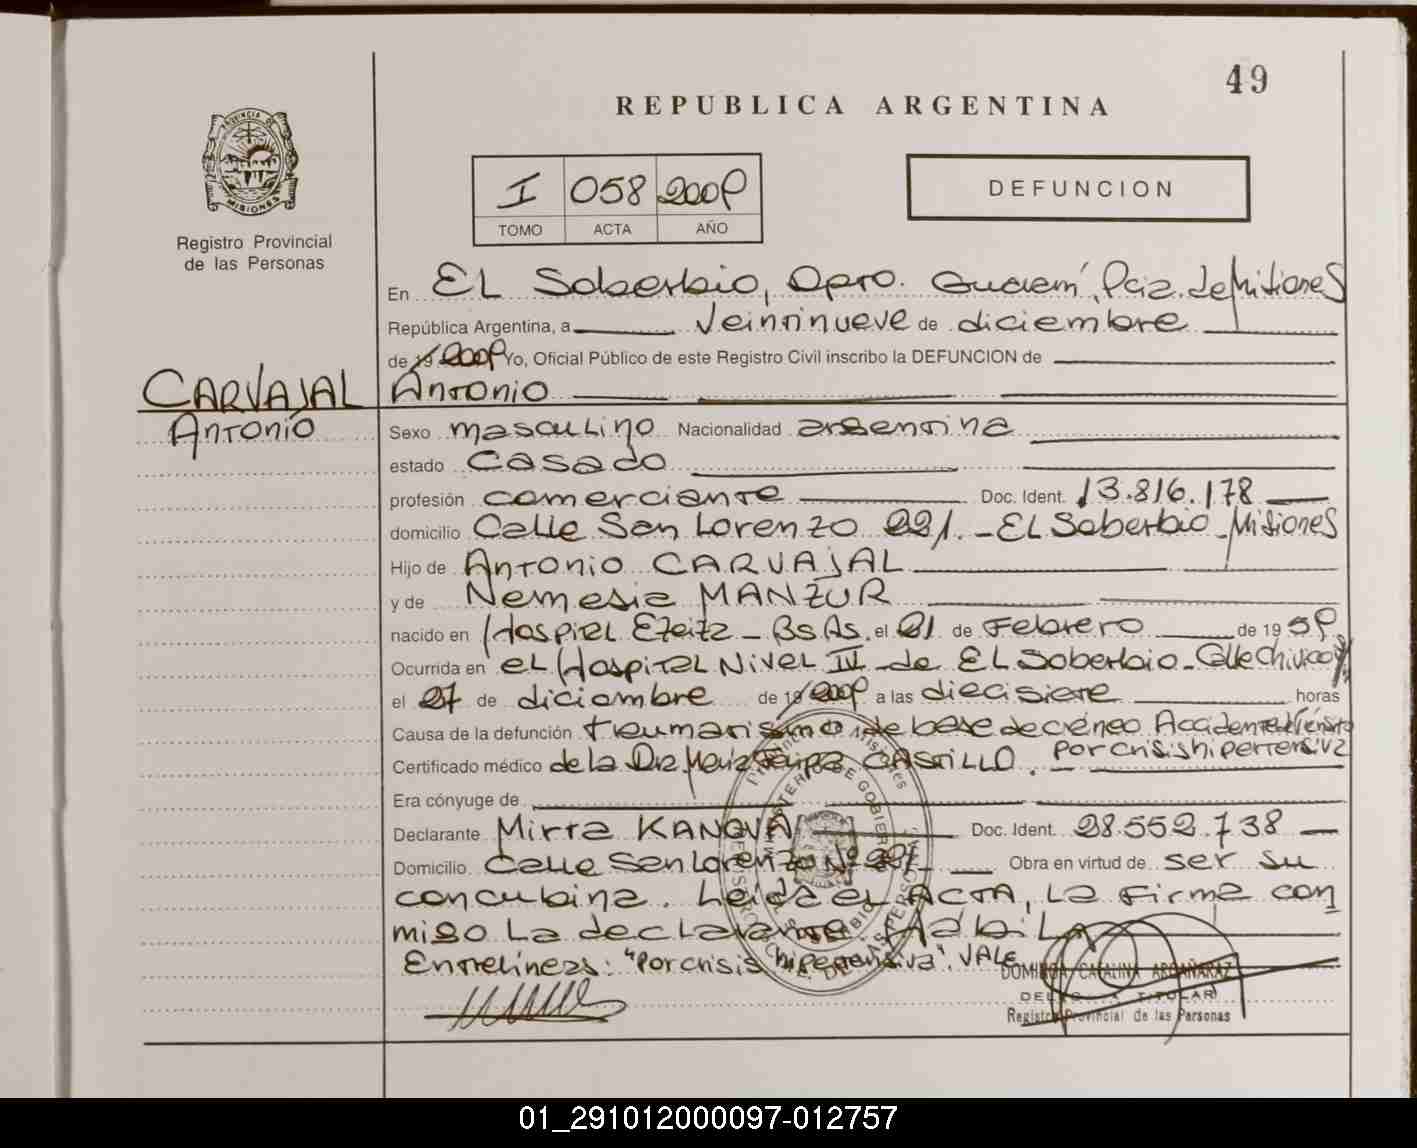 49
REPUBLICA ARGENTINA
PROVINCIA DE
MISIONES
Registro Provincial
de las Personas
I 058 2009
TOMO ACTA AÑO
DEFUNCION
En EL Soberbio, Dpto. Guaraní, Pcia. de Misiones
República Argentina, a veintinueve de diciembre
de 19 2009 Yo, Oficial Público de este Registro Civil inscribo la DEFUNCION de
CARVAJAL Antonio
Antonio
Sexo masculino Nacionalidad argentina
estado casado
profesión comerciante Doc. Ident. 13.816.178
domicilio Calle San Lorenzo 221.-EL Soberbio-Misiones
Hijo de Antonio CARVAJAL
y de Nemesia MANZUR
nacido en Hospital Ezeiza-Bs As. el 21 de Febrero de 1959
Ocurrida en el Hospital Nivel IV de EL Soberbio-Calle Chivicoy
el 27 de diciembre de 19 2009 a las diecisiete horas
Causa de la defunción traumatismo de base de cráneo Accidente de Tránsito
por crisis hipertensiva
Certificado médico de la Dra María CASTILLO.
Era cónyuge de
Declarante Mirta KANOVA Doc. Ident. 28.552.738
Domicilio Calle San Lorenzo Nº 221 Obra en virtud de ser su
concubina. Leída el ACTA, La Firma con
migo La declarante Habil
Entrelíneas: "Por crisis hipertensiva". VALE
DOMINGA CATALINA ARGAÑARAZ
DELEGADA TITULAR
Registro Provincial de las Personas
01_291012000097-012757